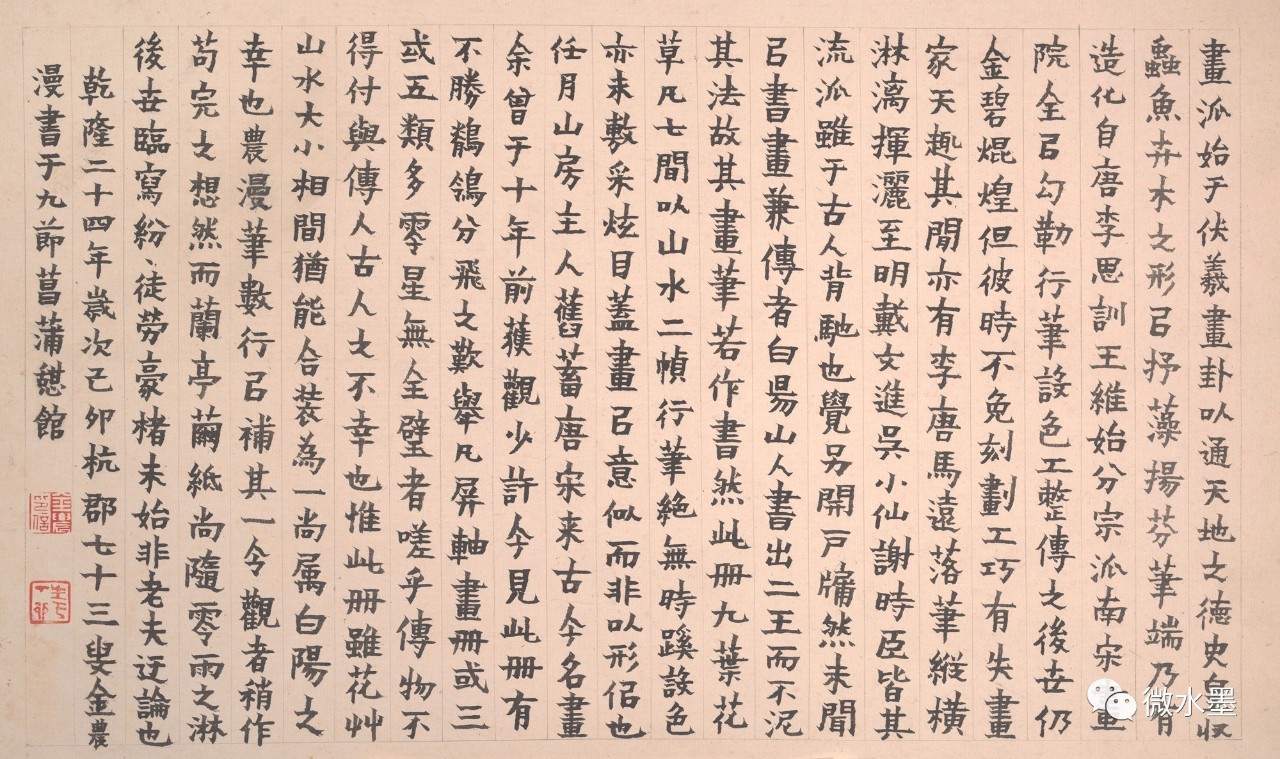 畫泒始于伏羲畫卦以通天地之德史皇收
蟲魚卉木之形㠯抒藻揚芬筆端乃有
造化自唐李思訓王維始分宗泒南宋畫
院全㠯勾勒行筆設色工整傳之後世仍
金碧焜煌但彼時不免刻劃工巧有失畫
家天趣其閒亦有李唐馬遠落筆縱橫
淋漓揮灑至明戴文進吳小仙謝時臣皆其
流泒雖于古人背馳也覺另開戸牖然未聞
㠯書畫兼傳者白昜山人書出二王而不泥
其法故其畫筆若作書然此冊九葉花
草凡七間以山水二幀行筆絕無時蹊設色
亦未敷采炫目蓋畫㠯意似而非以形侣也
任月山房主人舊蓄唐宋来古今名畫
余曾于十年前獲觀少許今見此冊有
不勝鶺鴒分飛之歎舉凡屏軸畫冊或三
或五類多零星無全璧者嗟乎傳物不
得付與傳人古人之不幸也惟此冊雖花艸
山水大小相間猶能合裝為一尚属白陽之
幸也農漫筆數行㠯補其一今觀者稍作
苟完之想然而蘭亭繭紙尚隨零雨之淋
後世臨寫紛、徒勞豪楮未始非老夫迂論也
乾隆二十四年歲次己卯杭郡七十三叟金農
漫書于九節菖蒲憩館
微水墨